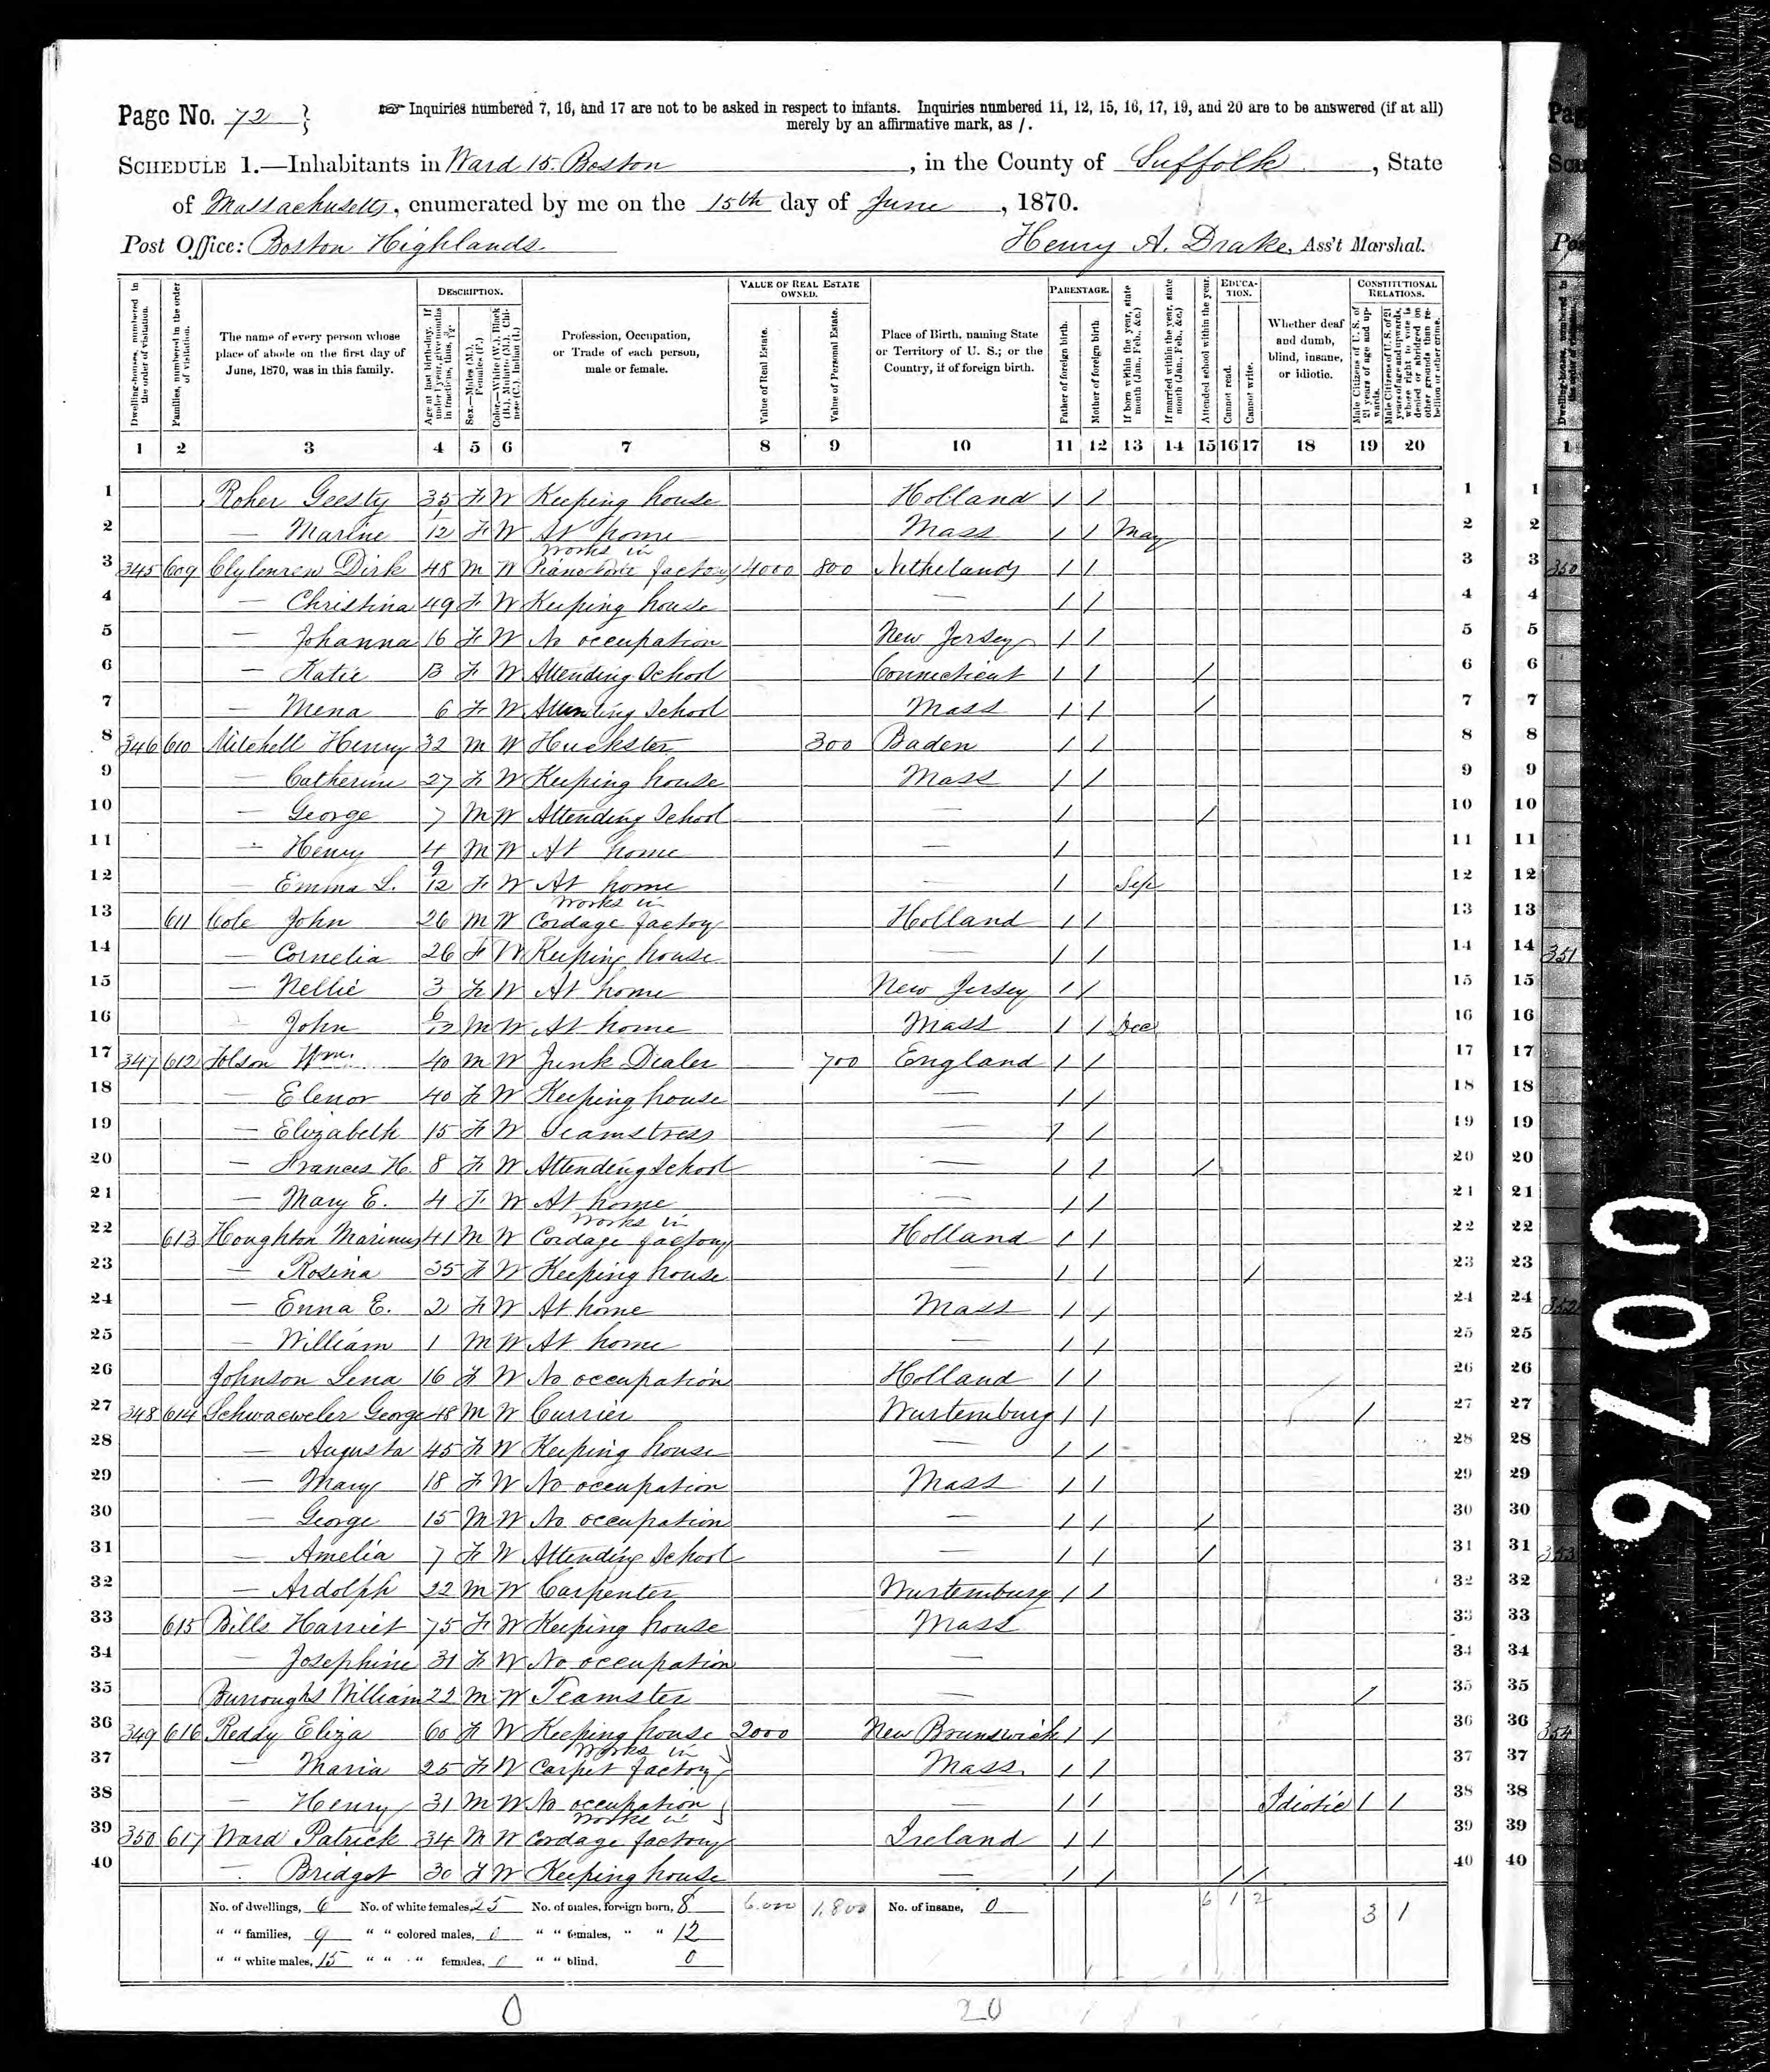 Page No. 72
☞ Inquiries numbered 7, 16, and 17 are not to be asked in respect to infants. Inquiries numbered 11, 12, 15, 16, 17, 19, and 20 are to be answered (if at all)
merely by an affirmative mark, as /.
SCHEDULE 1.—Inhabitants in Ward 15. Boston, in the County of Suffolk, State
of Massachusetts, enumerated by me on the 15th day of June, 1870.
Post Office: Boston Highlands Henry A. Drake, Ass't Marshal.
Dwelling-houses, numbered in the order of visitation.
Families, numbered in the order of visitation.
The name of every person whose place of abode on the first day of June, 1870, was in this family.
DESCRIPTION.
Age at last birth-day. If under 1 year, give months in fractions, thus, 3/12.
Sex.—Males (M.), Females (F.)
Color.—White (W.), Black (B.), Mulatto (M.), Chinese (C.), Indian (I.)
Profession, Occupation, or Trade of each person, male or female.
VALUE OF REAL ESTATE OWNED.
Value of Real Estate.
Value of Personal Estate.
Place of Birth, naming State or Territory of U. S.; or the Country, if of foreign birth.
PARENTAGE.
Father of foreign birth.
Mother of foreign birth.
If born within the year, state month (Jan., Feb., &c.)
If married within the year, state month (Jan., Feb., &c.)
Attended school within the year.
EDUCATION.
Cannot read.
Cannot write.
Whether deaf and dumb, blind, insane, or idiotic.
CONSTITUTIONAL RELATIONS.
Male Citizens of U. S. of 21 years of age and upwards.
Male Citizens of U. S. of 21 years of age and upwards, whose right to vote is denied or abridged on other grounds than rebellion or other crime.
1 2 3 4 5 6 7 8 9 10 11 12 13 14 15 16 17 18 19 20
1 Roher Geesty 35 F W Keeping house Holland / / 1
2 — Marine 1/12 F W At home Mass / / May 2
3 345 609 Dirk 48 M W Works in Piano forte factory 4000 800 Netherlands / / 3
4 — Christina 49 F W Keeping house — / / 4
5 — Johanna 16 F W No occupation New Jersey / / 5
6 — Katie 13 F W Attending School Connecticut / / / 6
7 — Mena 6 F W Attending School Mass / / / 7
8 346 610 Mitchell Henry 32 M W Huckster 300 Baden / / 8
9 — Catherine 27 F W Keeping house Mass / / 9
10 — George 7 M W Attending School — / / 10
11 — Henry 4 M W At home — / 11
12 — Emma L. 9/12 F W At home — / Sep 12
13 611 Cole John 26 M W Works in Cordage factory Holland / / 13
14 — Cornelia 26 F W Keeping house — / / 14
15 — Nellie 3 F W At home New Jersey / / 15
16 — John 6/12 M W At home Mass / / Dec 16
17 347 612 Folson Wm. 40 M W Junk Dealer 700 England / / 17
18 — Elenor 40 F W Keeping house — / / 18
19 — Elizabeth 15 F W Seamstress — / / 19
20 — Frances H. 8 F W Attending School — / / / 20
21 — Mary E. 4 F W At home — / / 21
22 613 Houghton Marinus 41 M W Works in Cordage factory Holland / / 22
23 — Rosina 35 F W Keeping house — / / / 23
24 — Enna E. 2 F W At home Mass / / 24
25 — William 1 M W At home — / / 25
26 Johnson Lena 16 F W No occupation Holland / / 26
27 348 614 Schwaeweler George 48 M W Currier Wurtemburg / / / 27
28 — Augusta 45 F W Keeping house — / / 28
29 — Mary 18 F W No occupation Mass / / 29
30 — George 15 M W No occupation — / / / 30
31 — Amelia 7 F W Attending School — / / / 31
32 — Ardolph 22 M W Carpenter Wurtemburg / / 32
33 615 Bills Harriet 75 F W Keeping house Mass 33
34 — Josephine 31 F W No occupation — 34
35 Burroughs William 22 M W Teamster — / 35
36 349 616 Reddy Eliza 60 F W Keeping house 2000 New Brunswick / / 36
37 — Maria 25 F W Works in Carpet factory Mass. / / 37
38 — Henry 31 M W No occupation — / / Idiotic / / 38
39 350 617 Ward Patrick 34 M W Works in Cordage factory Ireland / / 39
40 — Bridget 30 F W Keeping house — / / / / 40
No. of dwellings, 6 No. of white females, 25 No. of males, foreign born, 8 6,000 1,800 No. of insane, 0 6 1 2 3 1
" " families, 9 " " colored males, 0 " " females, " " 12
" " white males, 15 " " " females, 0 " " blind, 0
0 20
350
351
352
353
354
0076